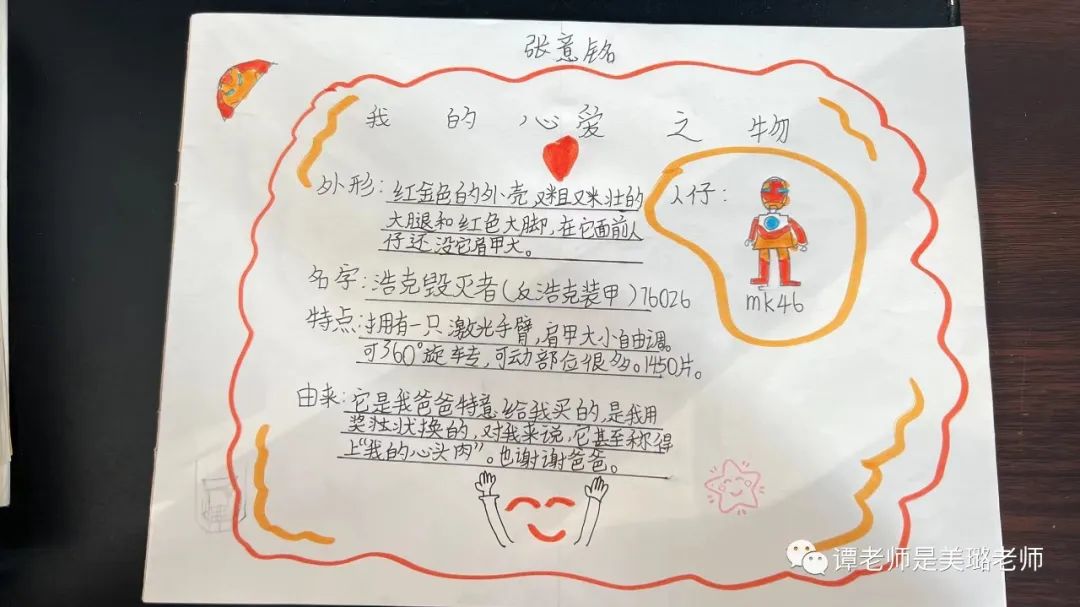 张意铭
我的心爱之物
外形：红金色的外壳，又粗又壮的
大腿和红色大脚，在它面前人
仔还没它肩甲大。
人仔：
mk46
名字：浩克毁灭者（反浩克装甲）76026
特点：拥有一只激光手臂，肩甲大小自由调。
可360°旋转，可动部位很多。1450片。
由来：它是我爸爸特意给我买的，是我用
奖状换的，对我来说，它甚至称得
上“我的心头肉”。也谢谢爸爸。
谭老师是美璐老师